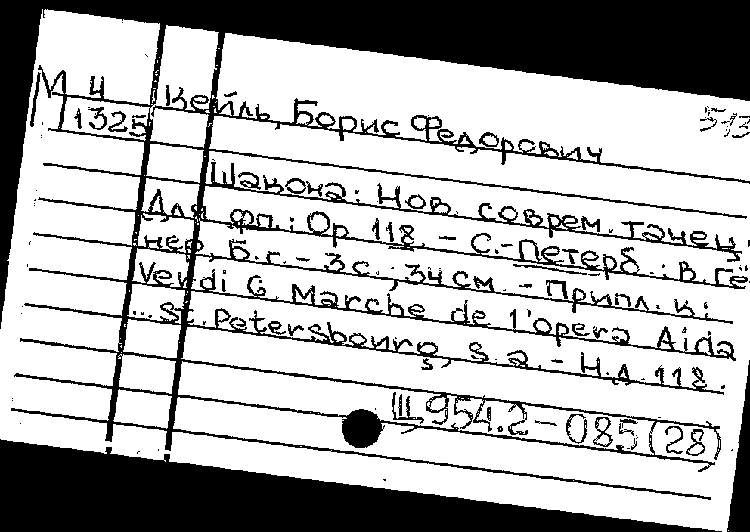 М 4 Кейль, Борис Федорович 513
1325
Шакона: Нов. соврем. танец.
Для фп.: Ор 118. - С.-Петерб.: В. Гё
нер, Б.г. - 3 с.; 34 см. - Припл. к:
Verdi G. Marche de l'opera Aida
... St. Petersbourg, s.a. - Н.д. 118.
Щ 954.2-085(28)